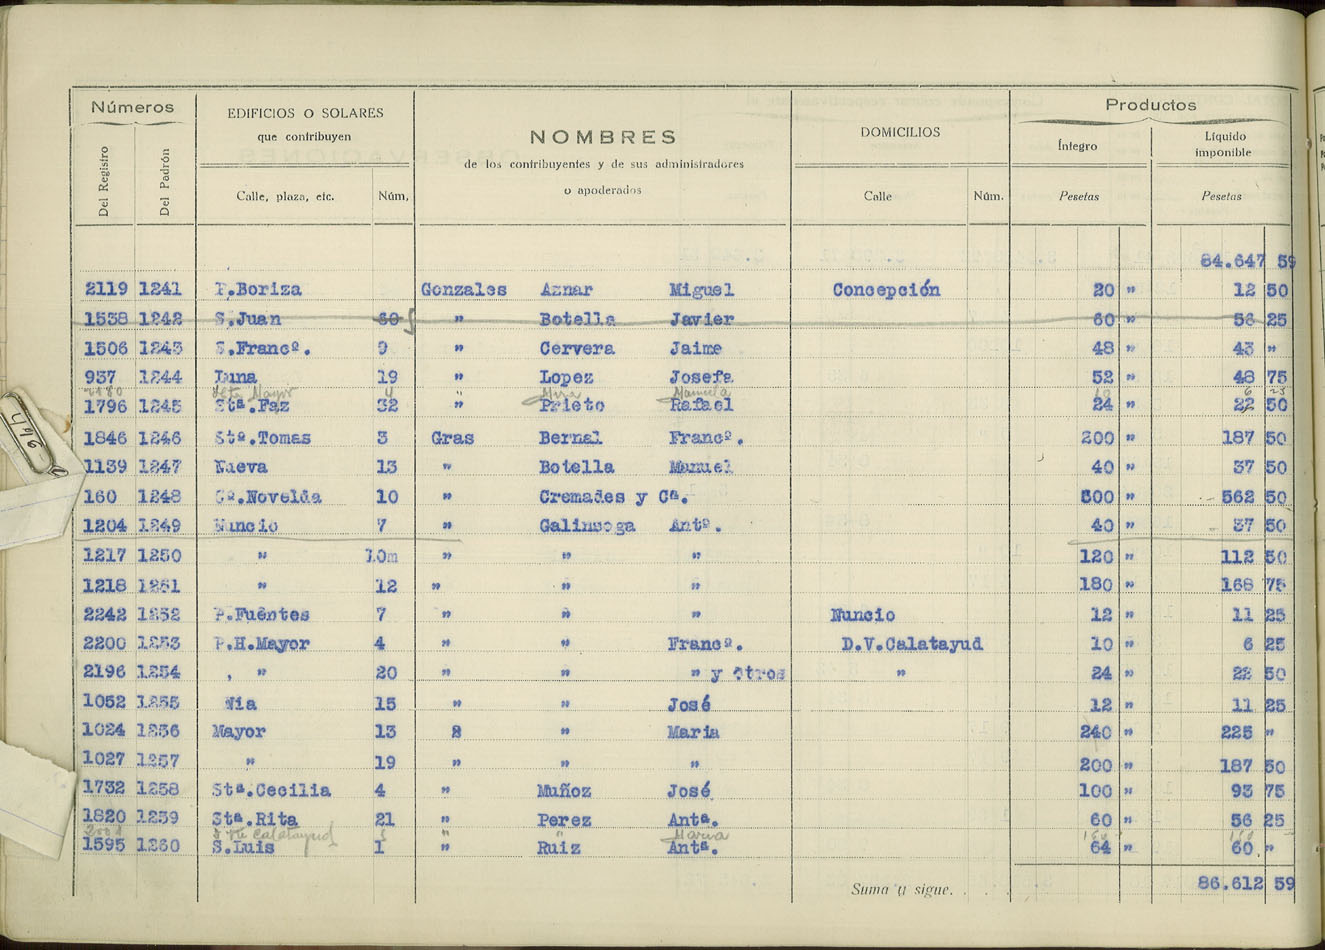 Números
EDIFICIOS O SOLARES
que contribuyen
NOMBRES
de los contribuyentes y de sus administradores
o apoderados
DOMICILIOS
Productos
Íntegro
Líquido
imponible
Del Registro
Del Padrón
Calle, plaza, etc.
Núm,
Calle
Núm.
Pesetas
Pesetas
84.647 59
2119 1241 P.Boriza Gonzales Aznar Miguel Concepción 20 " 12 50
1538 1242 S.Juan 60 " Botella Javier 60 " 56 25
1506 1243 S.Francº. 9 " Cervera Jaime 48 " 43 "
937 1244 Luna 19 " Lopez Josefa 52 " 48 75
Mayor 4 " Mira Manuela
1796 1245 Stª.Faz 32 " Prieto Rafael 24 " 22 50
1846 1246 Stº.Tomas 3 Gras Bernal Francº. 200 " 187 50
1139 1247 Nueva 13 " Botella Manuel 40 " 37 50
160 1248 Cª.Novelda 10 " Cremades y Cª. 600 " 562 50
1204 1249 Nuncio 7 " Galinsoga Antº. 40 " 37 50
1217 1250 " 10m " " " 120 " 112 50
1218 1251 " 12 " " " 180 " 168 75
2242 1252 P.Fuentes 7 " " " Nuncio 12 " 11 25
2200 1253 P.H.Mayor 4 " " Francº. D.V.Calatayud 10 " 6 25
2196 1254 , " 20 " " " y Otros " 24 " 22 50
1052 1255 Nia 15 " " José 12 " 11 25
1024 1256 Mayor 13 " Maria 240 " 225 "
1027 1257 " 19 " " " 200 " 187 50
1732 1258 Stª.Cecilia 4 " Muñoz José 100 " 93 75
1820 1259 Stª.Rita 21 " Perez Antª. 60 " 56 25
Calatayud " " Maria
1595 1260 S.Luis 1 " Ruiz Antª. 64 " 60 "
Suma y sigue. . . . . 86.612 59